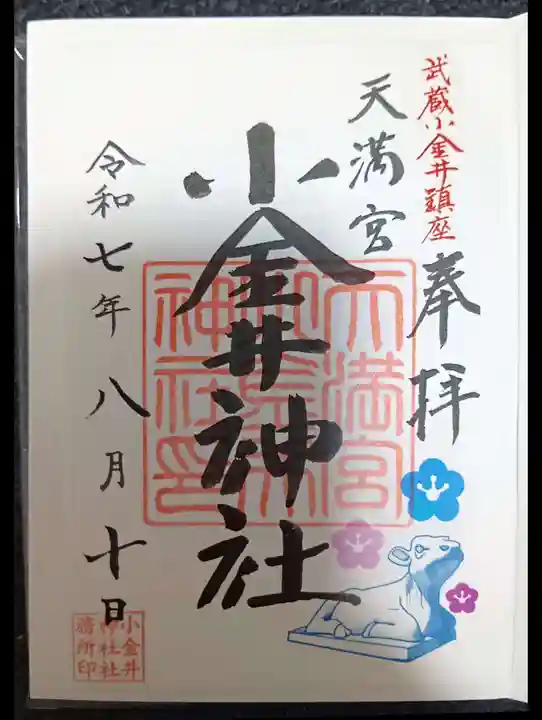 武蔵小金井鎮座
奉拝
天満宮
小金井神社
令和七年八月十日
天満宮
神社印
小金井
神社社
務所印